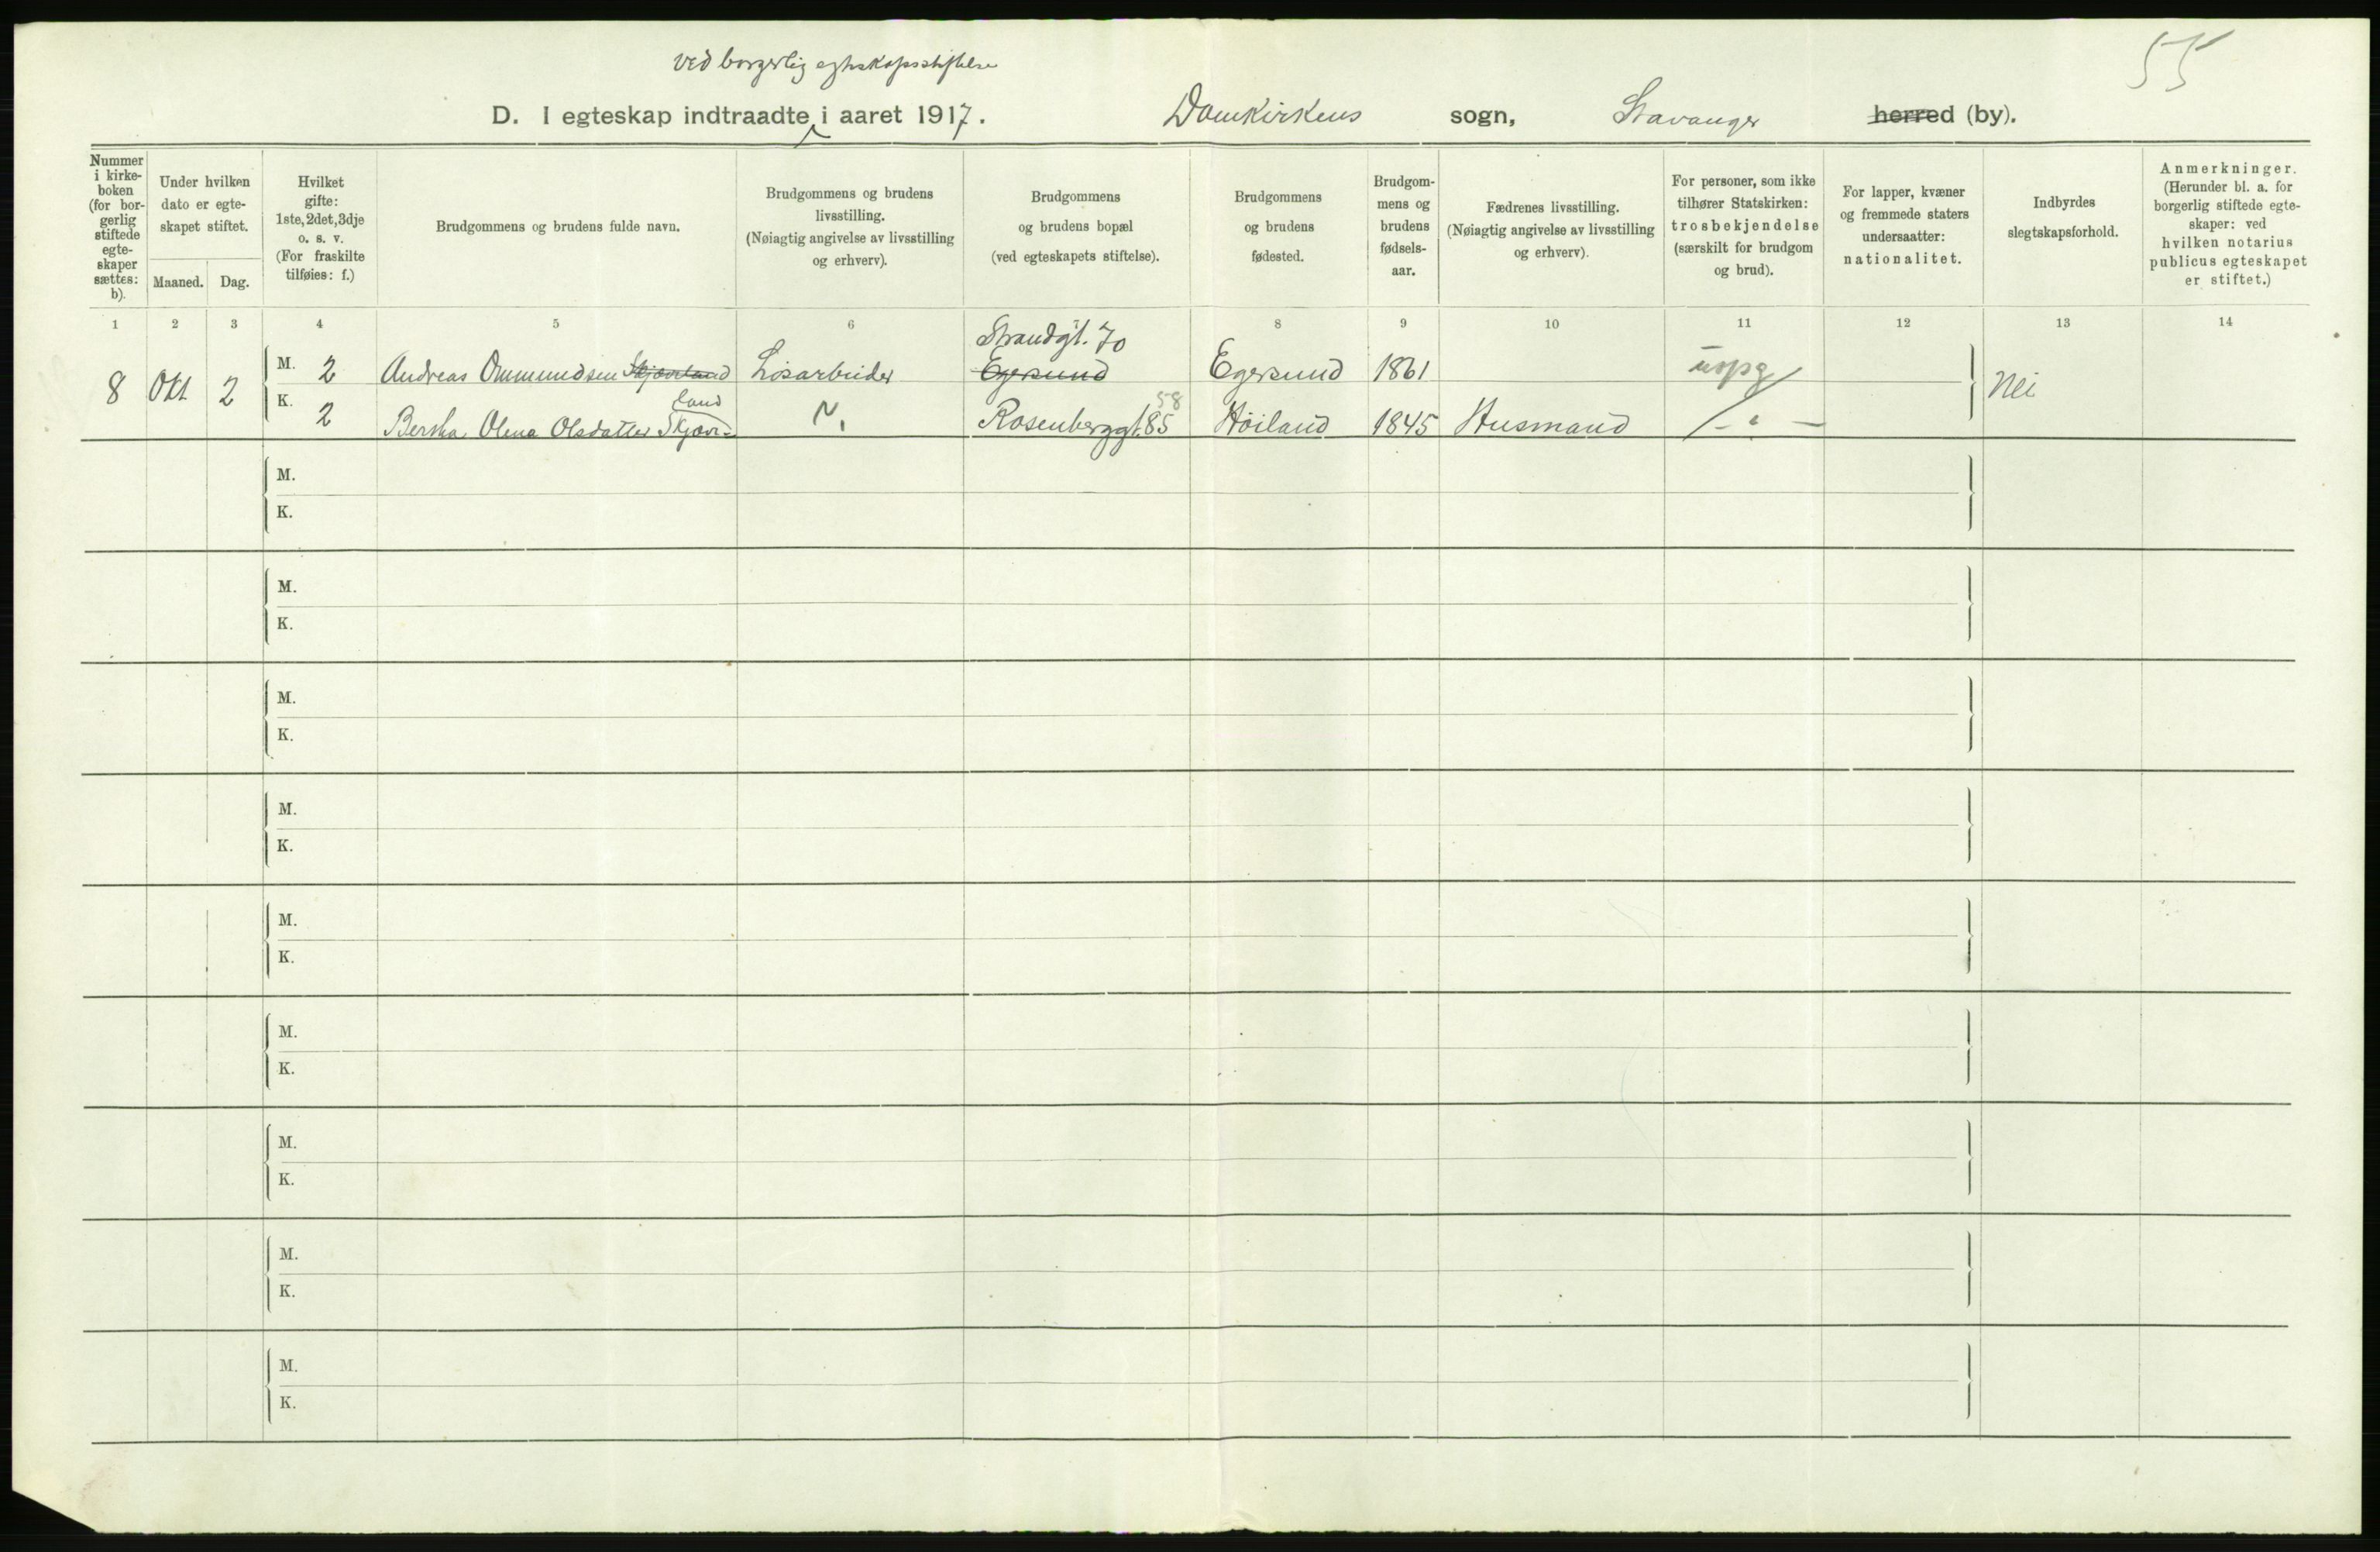 55
ved borgerlig egteskapsstiftelse
D. I egteskap indtraadte i aaret 1917. Domkirkens sogn, Stavanger herred (by).
Nummer i kirke- boken (for bor- gerlig stiftede egte- skaper sættes: b).
Under hvilken dato er egte- skapet stiftet.
Maaned. Dag.
Hvilket gifte: 1ste, 2det, 3dje o. s. v. (For fraskilte tilføies: f.)
Brudgommens og brudens fulde navn.
Brudgommens og brudens livsstilling. (Nøiagtig angivelse av livsstilling og erhverv).
Brudgommens og brudens bopæl (ved egteskapets stiftelse).
Brudgommens og brudens fødested.
Brudgom- mens og brudens fødsels- aar.
Fædrenes livsstilling. (Nøiagtig angivelse av livsstilling og erhverv).
For personer, som ikke tilhører Statskirken: trosbekjendelse (særskilt for brudgom og brud).
For lapper, kvæner og fremmede staters undersaatter: nationalitet.
Indbyrdes slegtskapsforhold.
Anmerkninger. (Herunder bl. a. for borgerlig stiftede egte- skaper: ved hvilken notarius publicus egteskapet er stiftet.)
1 2 3 4 5 6 8 9 10 11 12 13 14
Strandgt. 70
8 Okt 2 M. 2 Andreas Ommundsen Skjævland Løsarbeider Egersund Egersund 1861 uopg Nei
land 58
K. 2 Bertha Olena Olsdatter Skjæv- Rosenberggt. 85 Höiland 1845 Husmand -"-
M.
K.
M.
K.
M.
K.
M.
K.
M.
K.
M.
K.
M.
K.
M.
K.
M.
K.